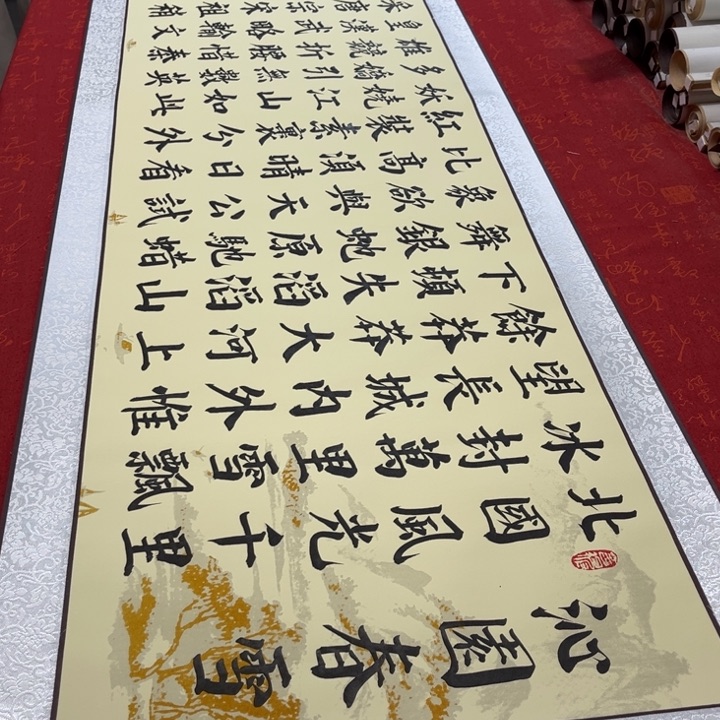 沁園春雪
北國風光千里
冰封萬里雪飄
望長城內外惟
餘莽莽大河上
下頓失滔滔山
舞銀蛇原馳蜡
象欲與天公試
比高須晴日看
紅裝素裹分外
妖嬈江山如此
多嬌引無數英
雄競折腰惜秦
皇漢武略輸文
采唐宗宋祖稍